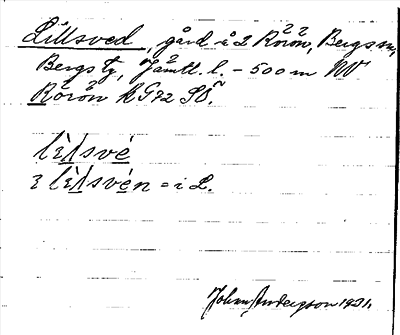 Lillsved, gård i 2 Rörön, Bergs sn,
Bergs tg, Jämtl. l. – 500 m NV
Rörön kG72 SO.
lìllsvé
3 lìllsvén = i L.
Johan Andersson 1931.